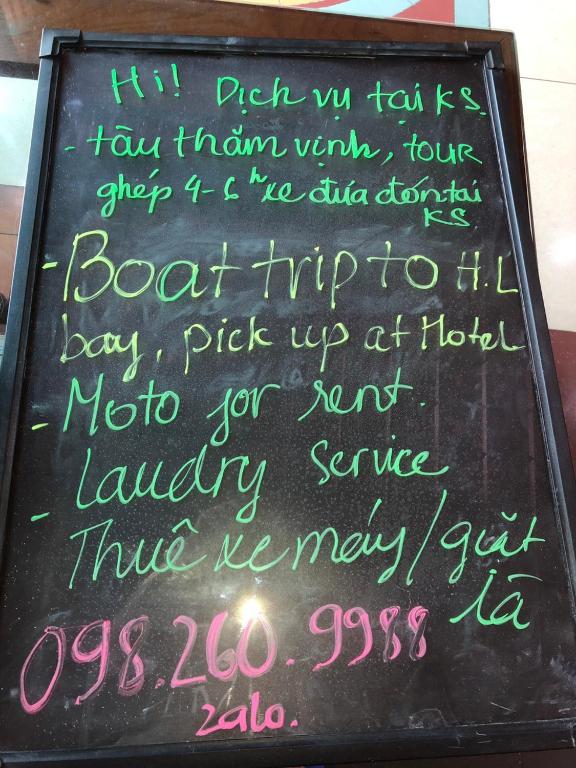 Hi! Dịch vụ tại KS.
- tàu thăm vịnh, TOUR
ghép 4-6h xe đưa đón tại
KS.
- Boat trip to H.L
bay, pick up at Hotel
- Moto for rent.
Laudry Service
- Thuê xe máy/giặt
là
098.260.9988
zalo.